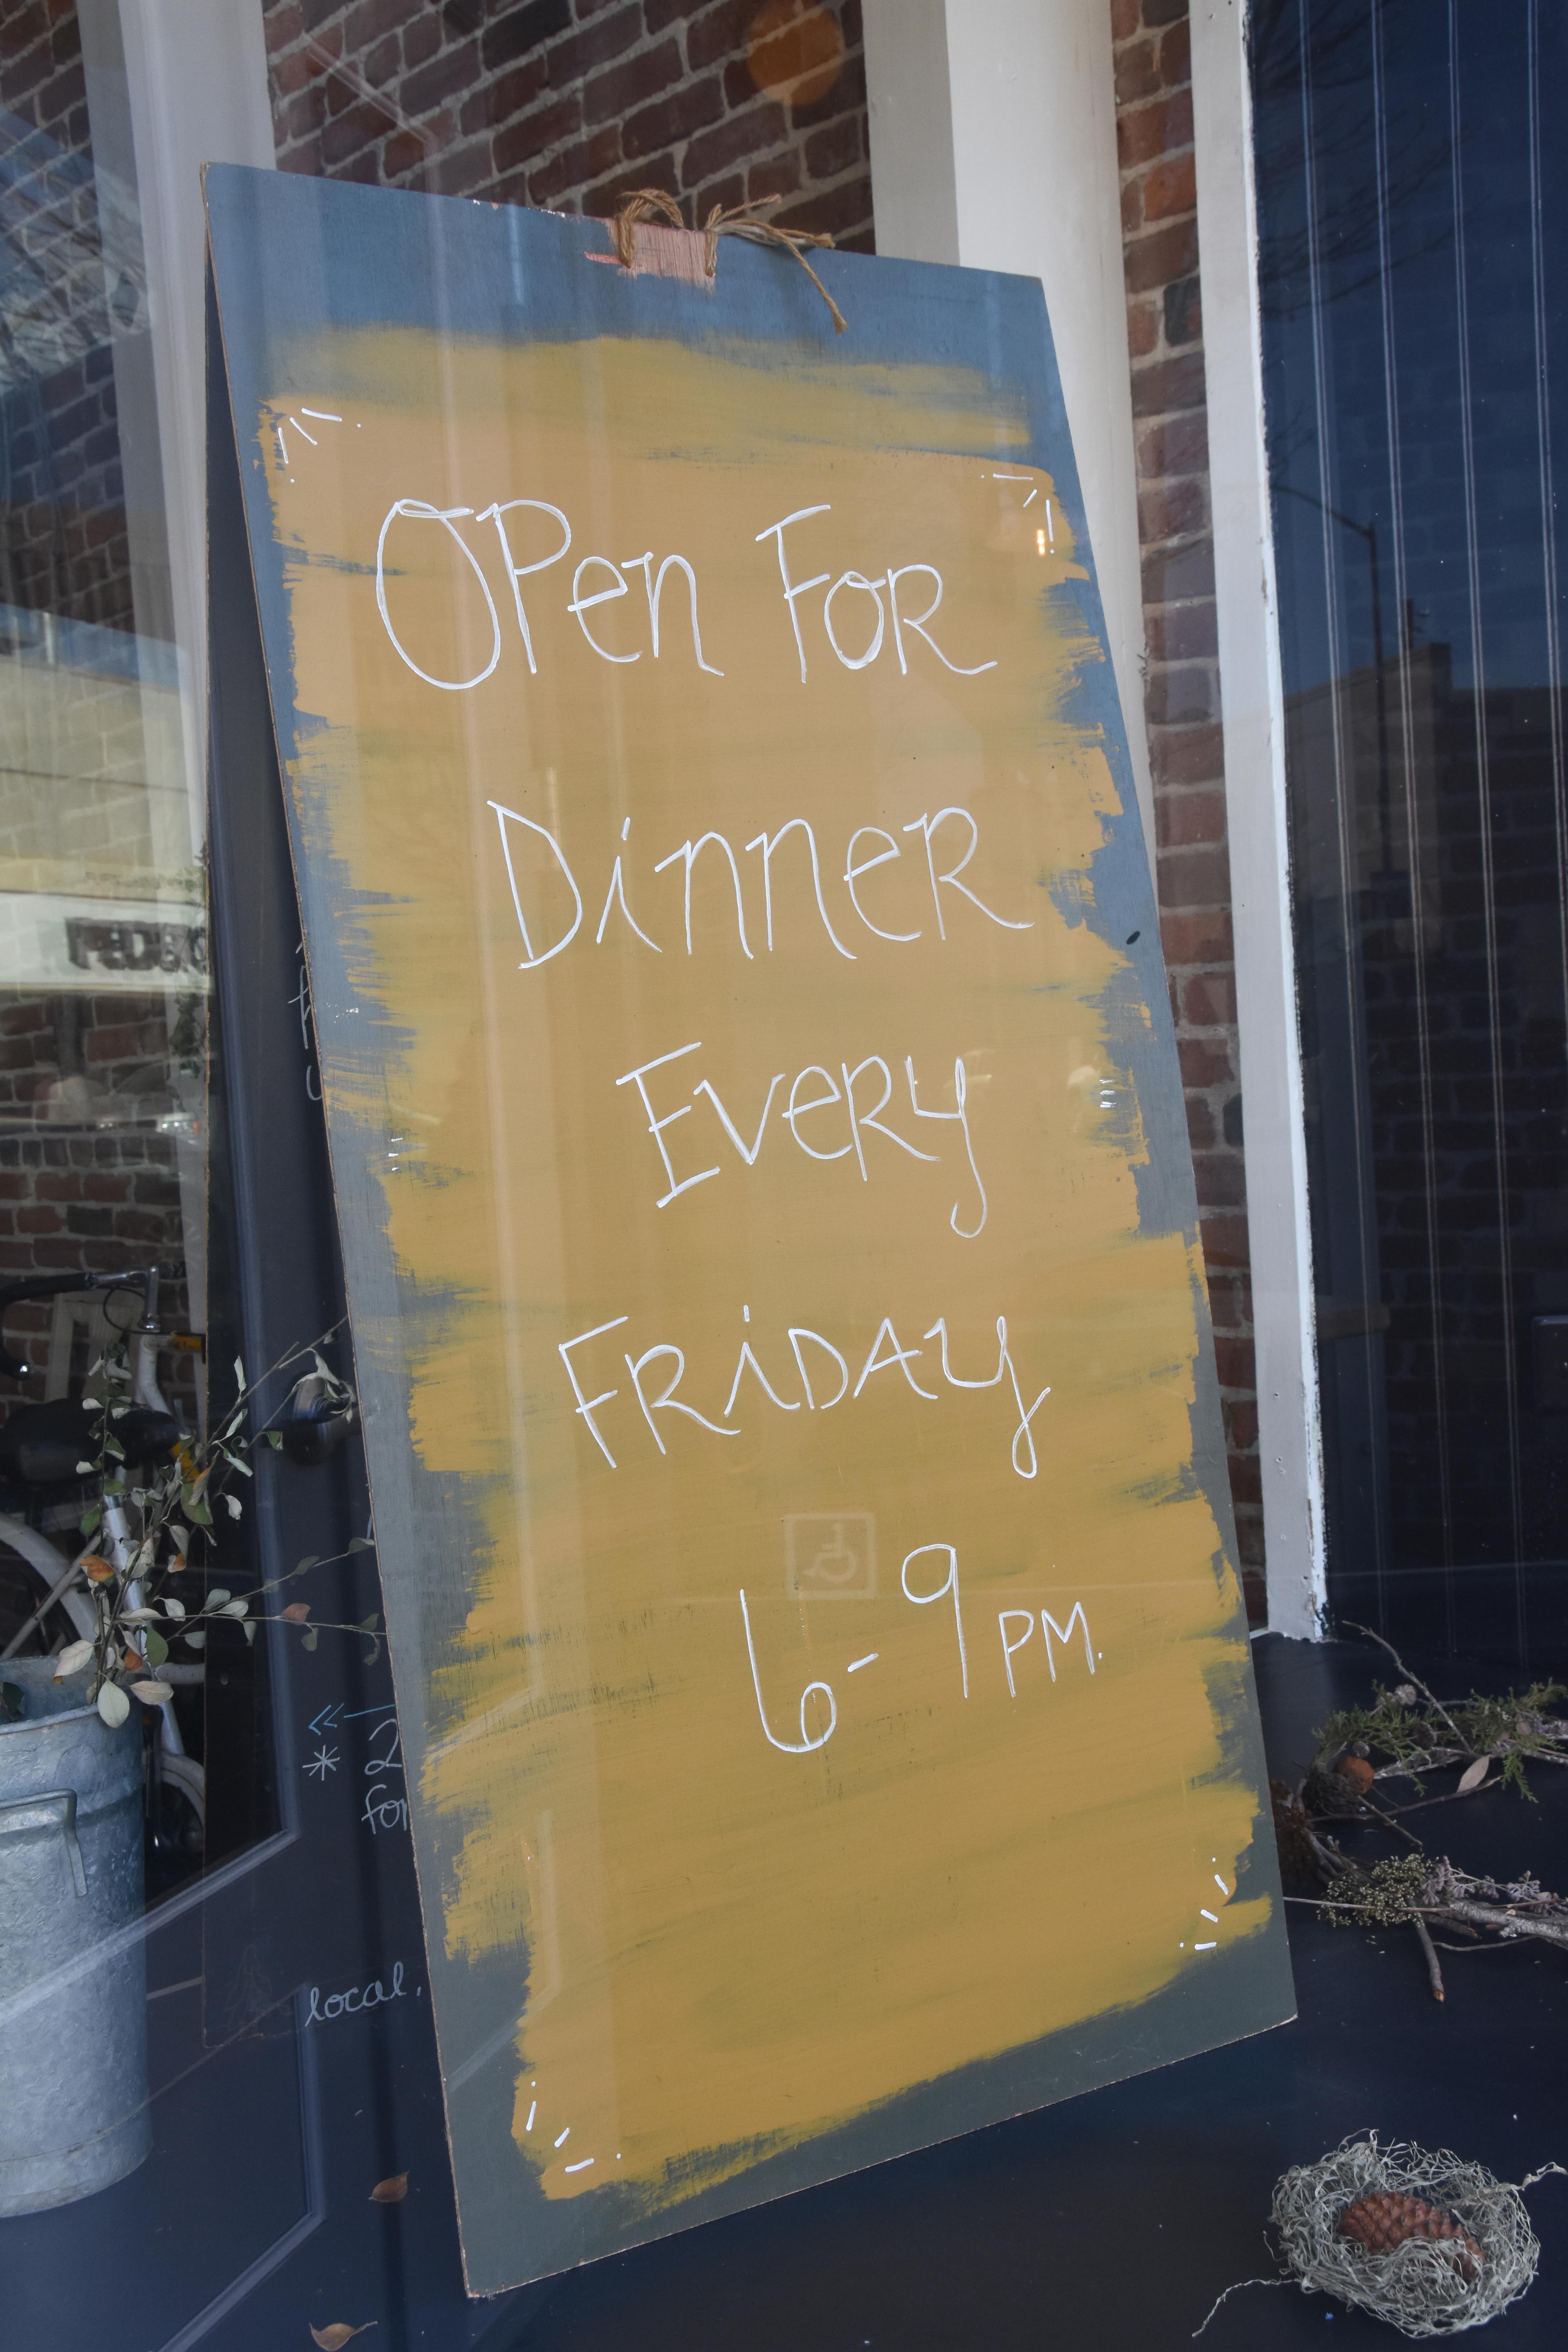 Open For
Dinner
Every
Friday
6-9 PM.
* 2
for
local,